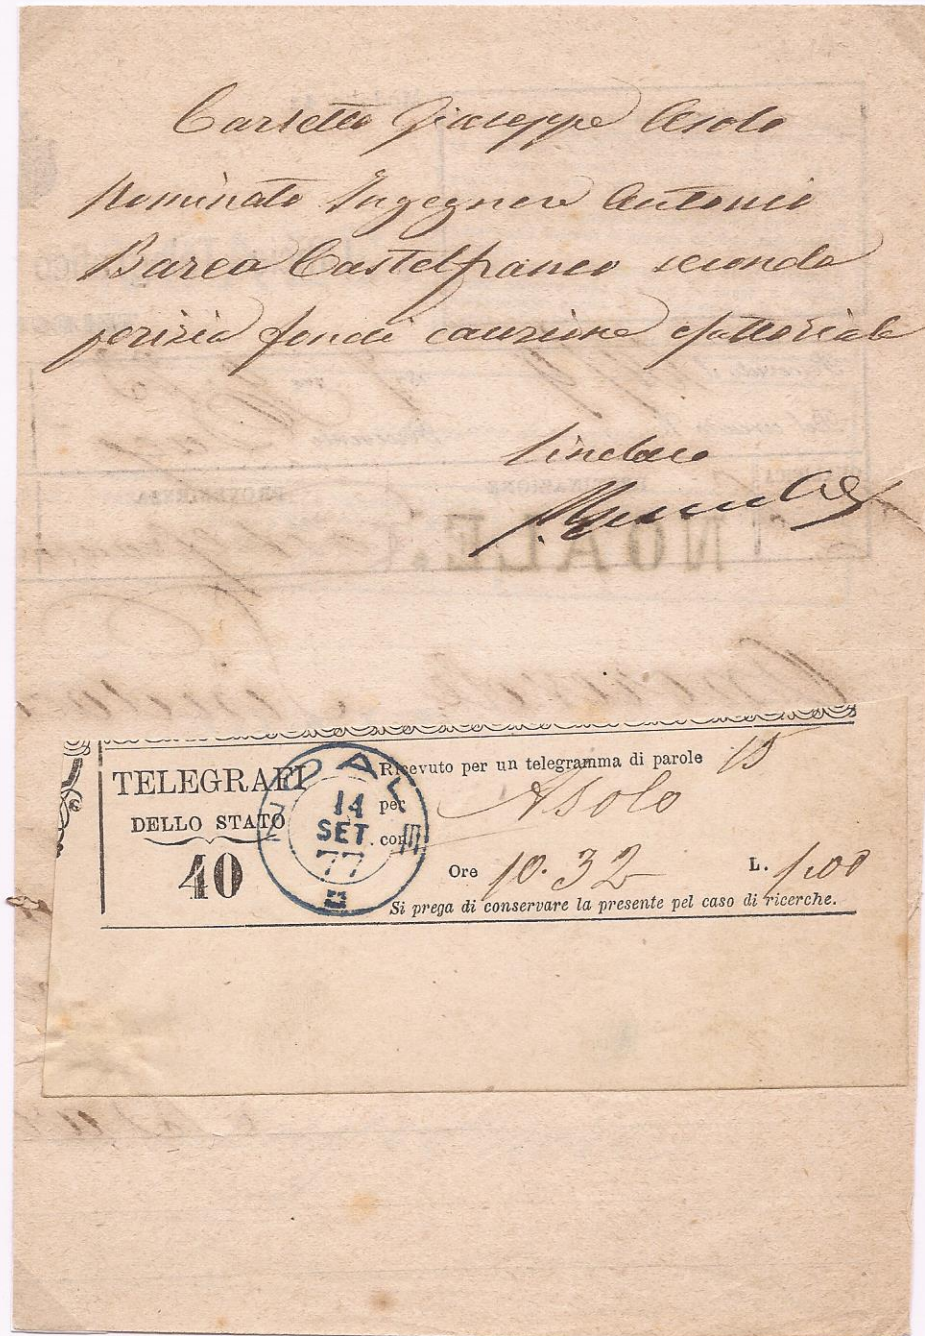 Carsetta Giuseppe Asolo
Nominato Ingegnere Antonio
Barea Castelfranco seconda
perizia fondi cauzione esattoriale
Sindaco
NOALE.
TELEGRAFI
DELLO STATO
40
NOALE
14
SET
77
Ricevuto per un telegramma di parole 15
per Asolo
con
Ore 10.32 L. 1.00
Si prega di conservare la presente pel caso di ricerche.